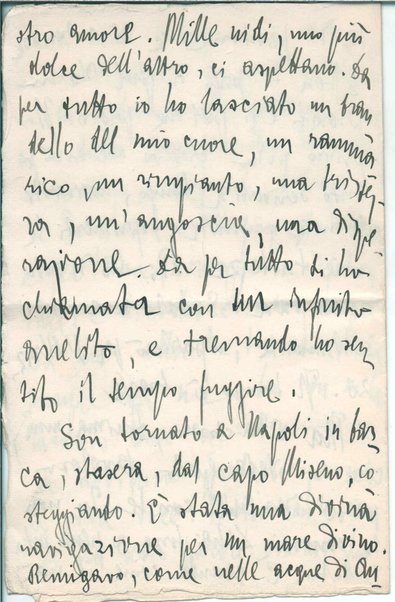 stro amore. Mille nidi, uno più
dolce dell'altro, ci aspettano. Da
per tutto io ho lasciato un bran
dello del mio cuore, un ramma
rico, un rimpianto, una tristez-
za, un'angoscia, una dispe
razione. Da per tutto ti ho
chiamata con un infinito
anelito, e tremando ho sen
tito il tempo fuggire.
Son tornato a Napoli in bar
ca, stasera, dal capo Miseno, co
steggiando. È stata una divina
navigazione per un mare divino.
Remigavo, come nelle acque di An